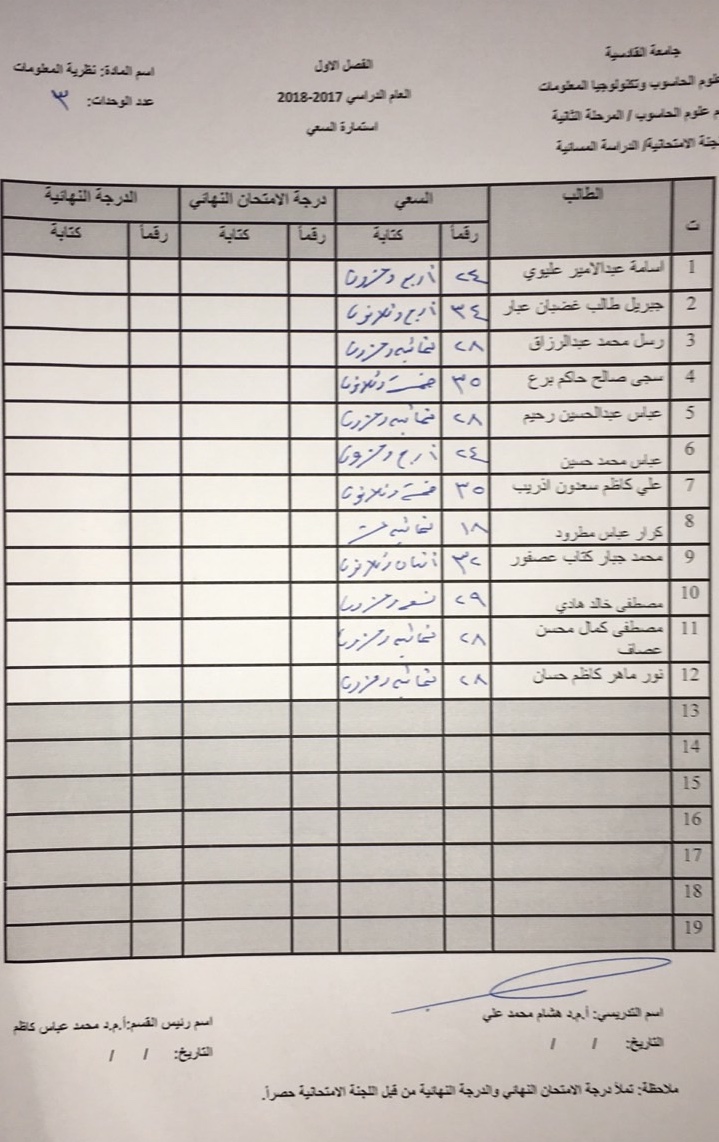 جامعة القادسية
علوم الحاسوب وتكنولوجيا المعلومات
علوم الحاسوب / المرحلة الثانية
الامتحانية/ الدراسة المسائية
الفصل الاول
العام الدراسي 2017-2018
استمارة السعي
اسم المادة: نظرية المعلومات
عدد الوحدات: ٣
ت الطالب السعي درجة الامتحان النهائي الدرجة النهائية
رقماً كتابة رقماً كتابة رقماً كتابة
1 اسامة عبدالامير عليوي ٢٤ اربع وعشرون
2 جبريل طالب غضبان عبار ٣٤ اربع وثلاثون
3 رسل محمد عبدالرزاق ٢٨ ثمانيه وعشرون
4 سجى صالح حاكم برع ٣٥ خمسة وثلاثون
5 عباس عبدالحسين رحيم ٢٨ ثمانيه وعشرون
6 عباس محمد حسين ٢٤ اربع وعشرون
7 علي كاظم سعدون اذريب ٣٥ خمسة وثلاثون
8 كرار عباس مطرود ١٨ ثمانيه عشر
9 محمد جبار كتاب عصفور ٣٢ اثنان وثلاثون
10 مصطفى خالد هادي ٢٩ تسعه وعشرون
11 مصطفى كمال محسن ٢٨ ثمانيه وعشرون
عصاف
12 نور ماهر كاظم حسان ٢٨ ثمانيه وعشرون
13
14
15
16
17
18
19
اسم التدريسي: أ.م.د هشام محمد علي
التاريخ: / /
اسم رئيس القسم:أ.م.د محمد عباس كاظم
التاريخ: / /
ملاحظة: تملأ درجة الامتحان النهائي والدرجة النهائية من قبل اللجنة الامتحانية حصراً.